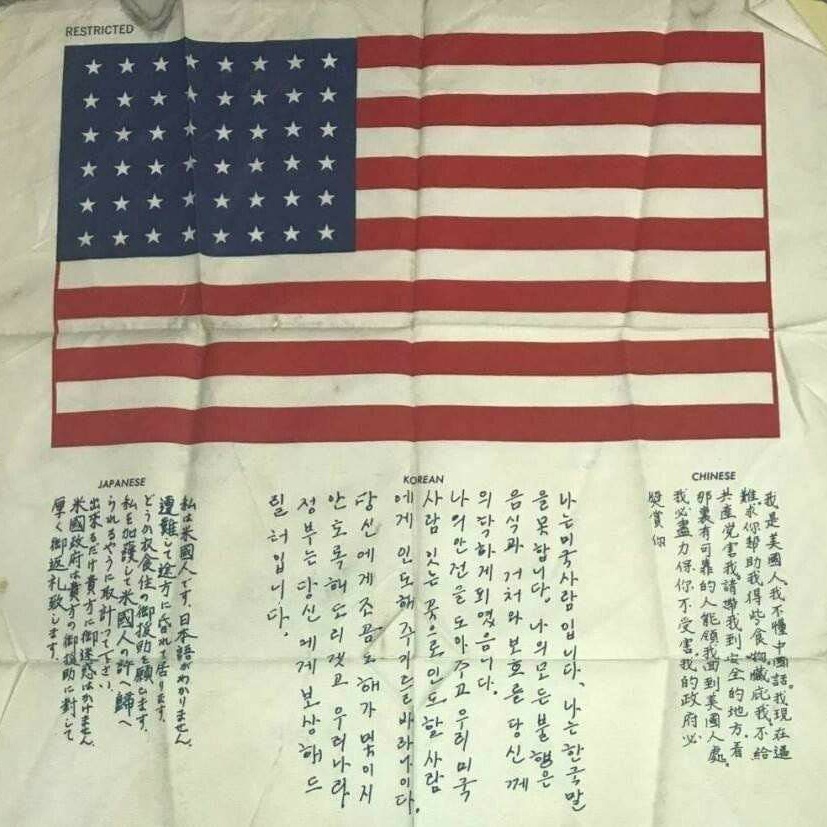 RESTRICTED
JAPANESE
私は米國人です。日本語がわかりません。
遭難して途方に昏れて居ります。
どうか衣食住の御援助を願ひます。
私を加護して米國人の許へ歸へ
られるやうに取計つて下さい。
出來るだけ貴方に御迷惑はかけません。
米國政府は貴方の御援助に對して
厚く御返礼致します。
KOREAN
나는 미국사람입니다. 나는 한국말
을 못합니다. 나의 모든 불행은
음식과 거처와 보호를 당신께
의탁하게 되였읍니다.
나의 안전을 도아주고 우리 미국
사람 잇는 곳으로 인도할 사람
에게 인도해 주기를 바라나이다.
당신에게 조곰도 해가 밋이지
안토록 해 드리겟고 우리나라
정부는 당신에게 보상해 드
릴 터입니다.
CHINESE
我是美國人。我不懂中國話。我現在遇
難。求你幫助我得些食物。藏庇我。不給
共產党害我。請帶我到安全的地方。若
那裏有可靠的人能領我回到美國人處。
我必盡力保你不受害。我的政府必
獎賞你